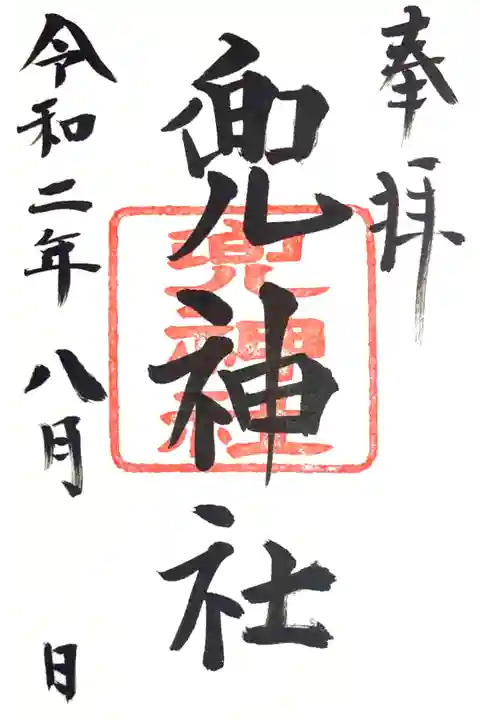 奉拝
兜神社
兜神社
令和二年 八月 日